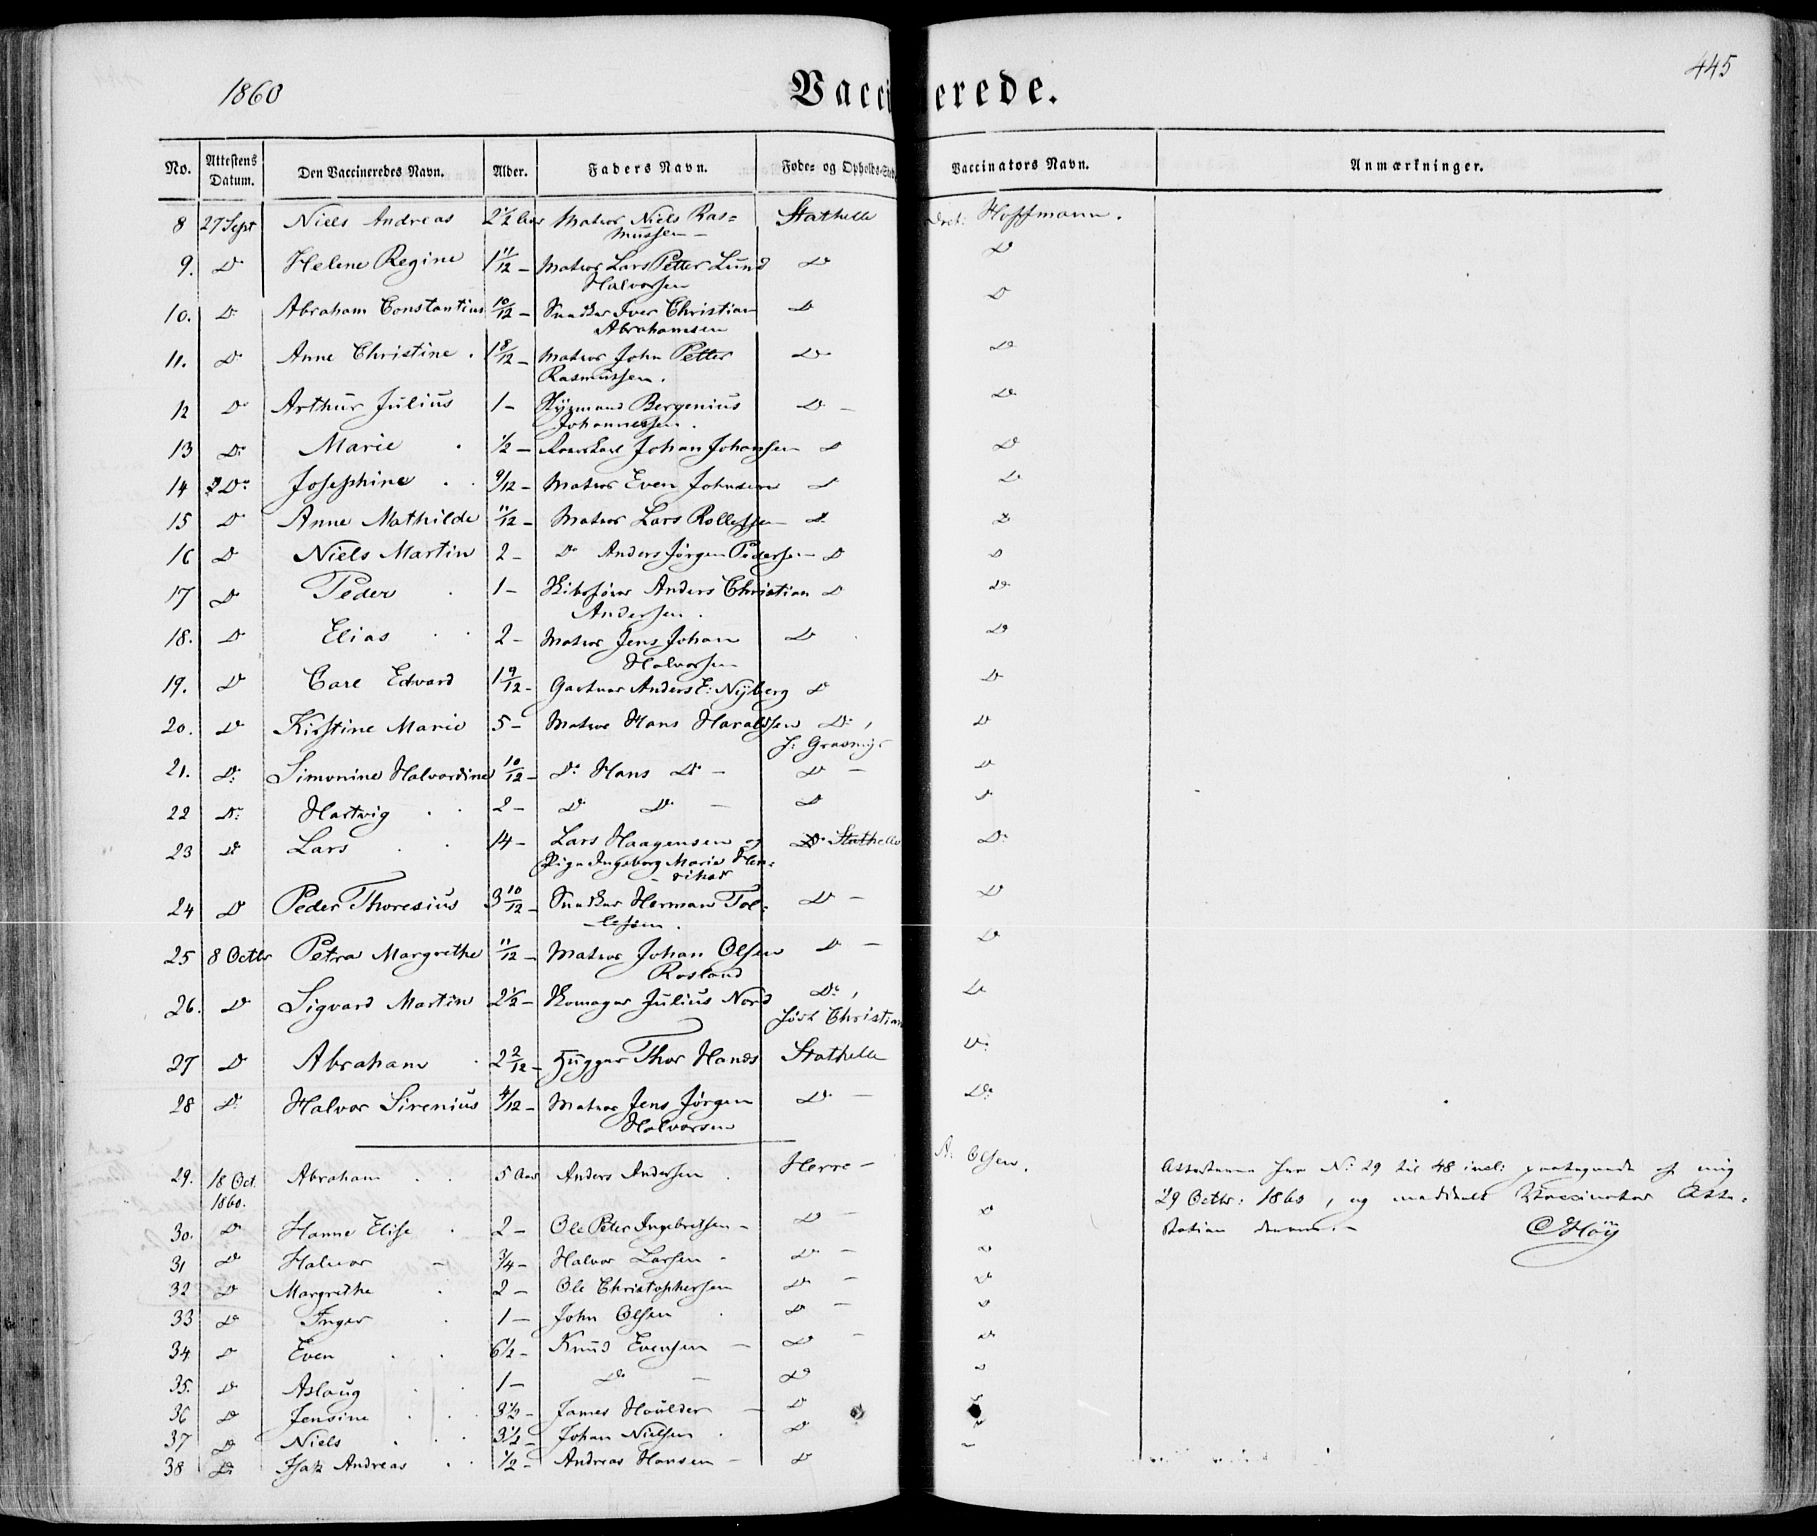 1860
Vaccinerede.
445
No. Attestens Datum. Den Vaccineredes Navn. Alder. Faders Navn. Føde- og Opholds-Sted Vaccinators Navn. Anmærkninger.
8 27 Sept Niels Andreas 2 1/2 Aar Matros Niels Ras= Stathelle Doct: Hoffmann.
mussen -
9. Do Helene Regine 1 11/12 - Matros Lars Petter Lund Do Do
Halvorsen
10. Do Abraham Constantius 10/12 - Snedker Iver Christian Do Do
Abrahamsen
11. Do Anne Christine . 1 8/12 - Matros John Petter Do Do
Rasmussen.
12 Do Arthur Julius 1 - Bergenius Do - Do
Johannessen.
13 Do Marie . 1/2 - Johan Johansen Do Do
14 Do Josephine . . 9/12 - Matros Even Johnsen Do Do
15 Do Anne Mathilde 11/12 - Matros Lars Rollefsen - Do Do
16 Do Niels Martin 2 - Do Anders Jørgen Pedersen - Do Do
17 Do Peder . 1 - Anders Christian Do Do
Andersen.
18. Do Elias . . 2 - Matros Jens Johan Do Do
Halvorsen
19. Do Carl Edvard 1 9/12 - Gartner Anders E: Nyberg Do Do
20. Do Kirstine Marie 5 - Matros Hans Haraldsen Do, Do
f: Grasmyr
21. Do Simonine Halvordine 10/12 - Do Hans Do - Do - Do
22 Do Hartvig . . 2 - Do Do - Do Do
23 Do Lars . . 14 - Lars Haagensen og Do Stathelle Do
Pige Ingeborg Marie Hen=
- riksd
24 Do Peder Thoresius 3 10/12 - Snedker Herman Tol= Do - Do
- lefsen.
25 8 Octbr Petra Margrethe 11/12 - Matros Johan Olsen Do - Do
Rosland
26. Do Sigvard Martin 2 1/2 - Skomager Julius Nord Do, Do
født Christian
27 Do Abraham . 2 2/12 - Hugger Thor Hanss Stathelle Do
28 Do Halvor Sirenius 4/12 - Matros Jens Jørgen Do - Do
Halvorsen
29. 18 Oct. Abraham . . 5 Aar Anders Andersen . Herre - A. Olsen. Attesterne fra No 29 til 48 incl: paategnede af mig
1860. 29 Octbr: 1860, og meddeelt Vaccinator Atte=
30. Do Hanne Elise . 2 - Ole Peter Ingebretsen - Do - Do station derom. - CHøy
31 Do Halvor - 3/4 - Halvor Larsen - Do - Do
32 Do Margrethe . 2 - Ole Christophersen Do - Do
33 Do Inger . 1 - John Olsen . Do - Do
34 Do Even . . 6 1/2 - Knud Evensen - Do - Do
35. Do Aslaug . . 1 - Do - Do Do
36 Do Jensine . . . 3 1/2 - James Houlder - Do
37 Do Niels . . . 3 1/2 - Johan Nielsen . Do
38 Do Isak Andreas . . 1/2 - Andreas Hansen - Do